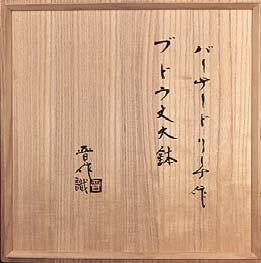 バーナードリーチ作
ブドウ文大鉢
晋作識
晋